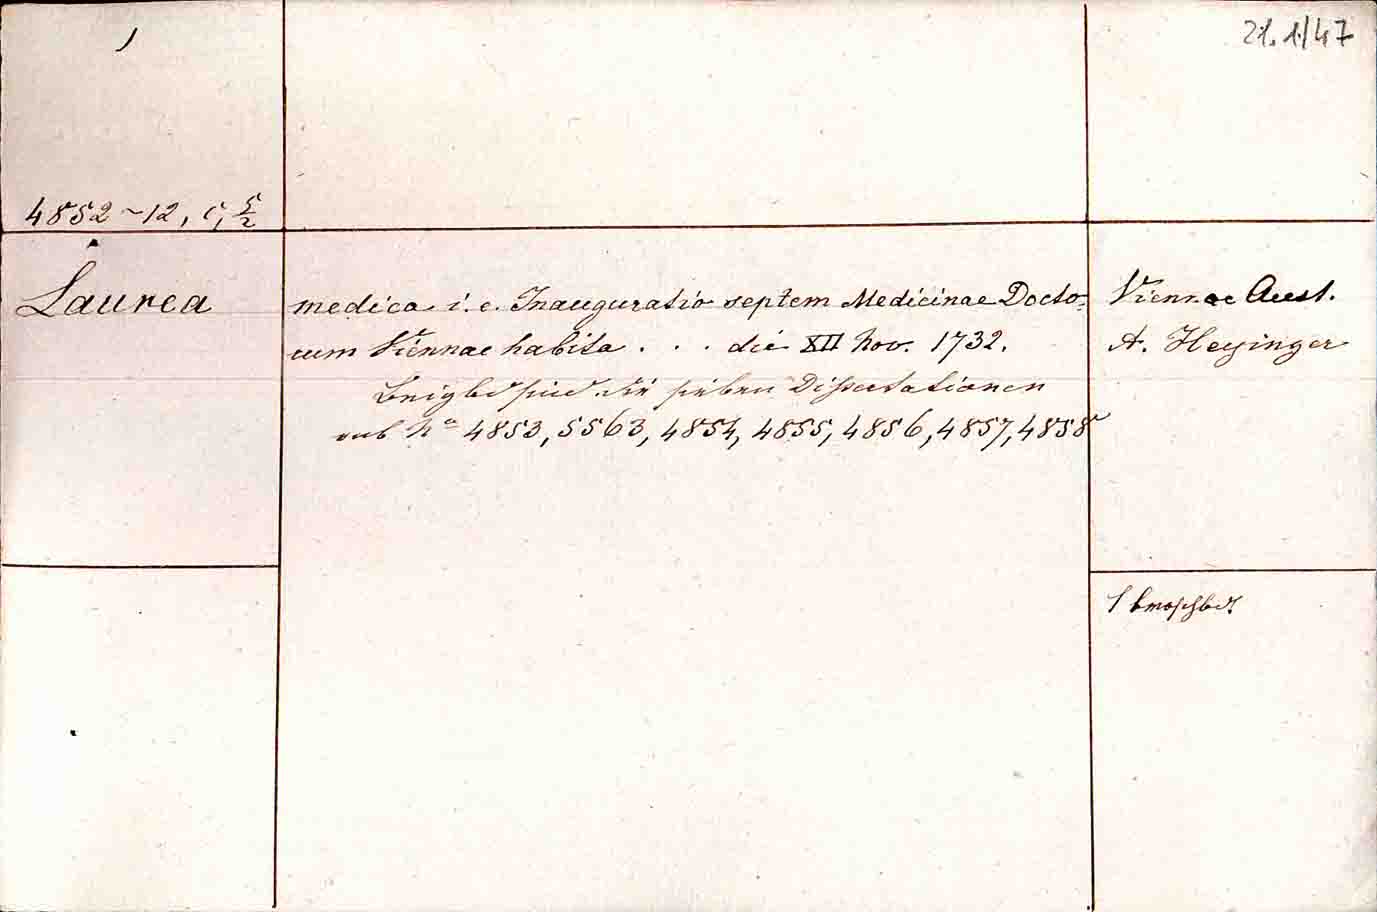 21. 1/47
4852-12, C, 5/2
Laurea
medica i. e. Inauguratio septem Medicinae Docto-
rum Viennae habita . . . die XII Nov. 1732.
sind die sieben Dissertationen
sub No 4853, 5563, 4854, 4855, 4856, 4857, 4858
Viennae Aust.
A. Heyinger
1 broschirt